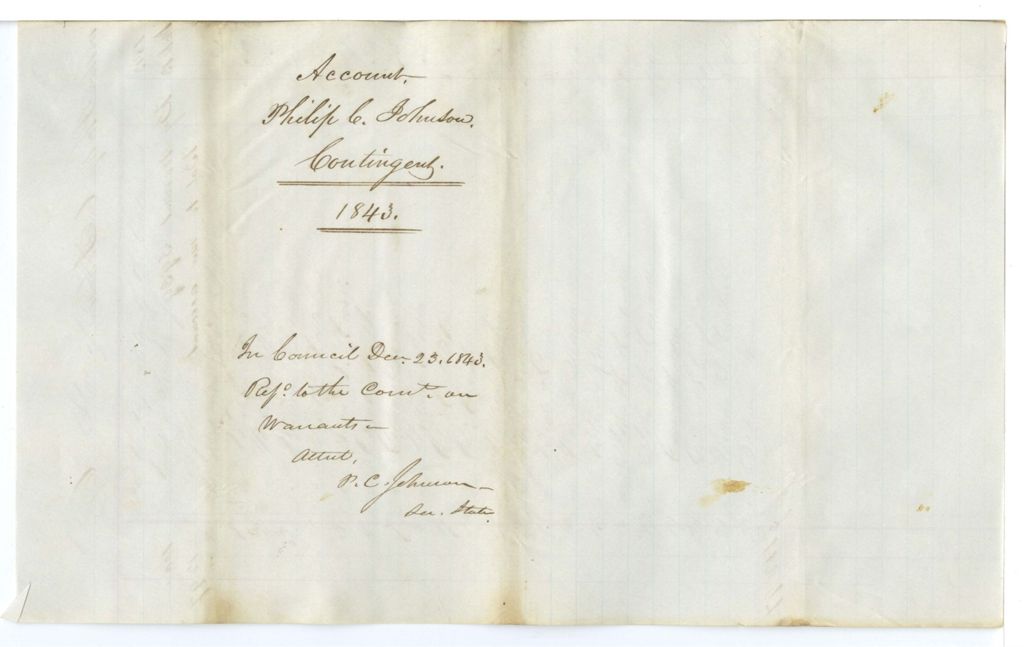 Account.
Philip C. Johnson.
Contingent.
1843.
In Council Dec. 23. 1843.
Refd. to the Comte. on
Warrants –
Attest,
P. C. Johnson –
Sec. State.